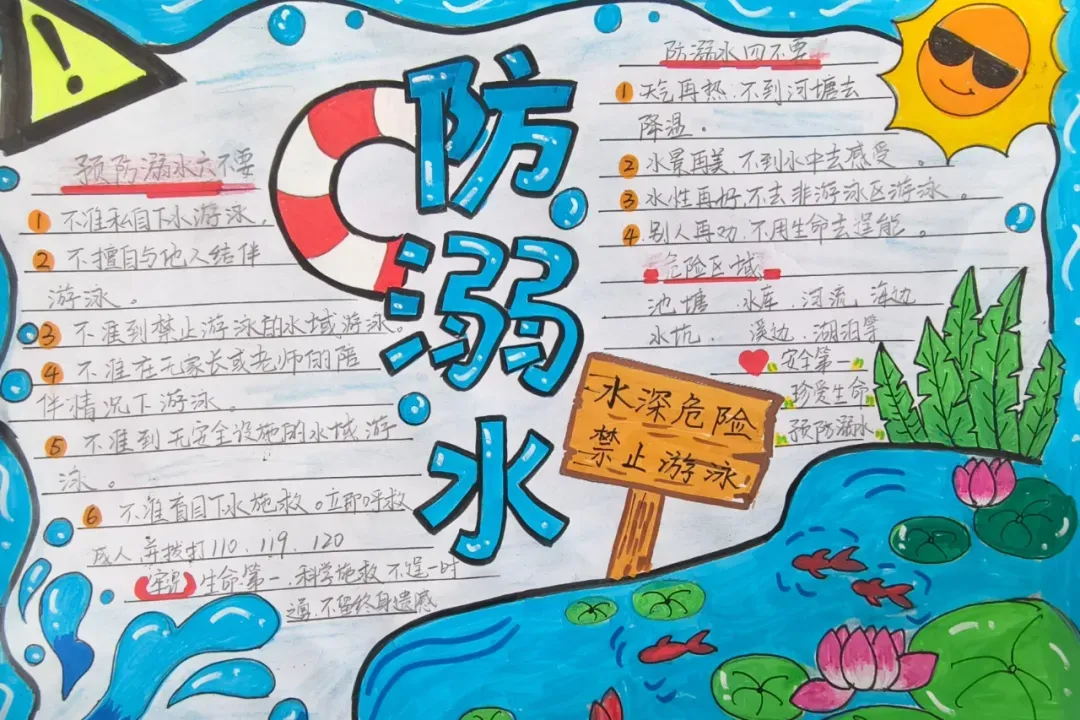 防溺水
预防溺水六不要
1 不准私自下水游泳.
2 不擅自与他人结伴
游泳。
3 不准到禁止游泳的水域游泳。
4 不准在无家长或老师的陪
伴情况下游泳。
5 不准到无安全设施的水域游
泳。
6 不准盲目下水施救。立即呼救
成人,并拨打110、119、120
牢记 生命第一,科学施救 不逞一时
之勇,不留终身遗憾
防溺水四不要
1 天气再热、不到河塘去
降温。
2 水景再美、不到水中去感受。
3 水性再好,不去非游泳区游泳。
4 别人再劝,不用生命去逞能。
危险区域
池塘、水库、河流、海边
水坑、溪边、湖泊等
安全第一
珍爱生命
预防溺水
水深危险
禁止游泳